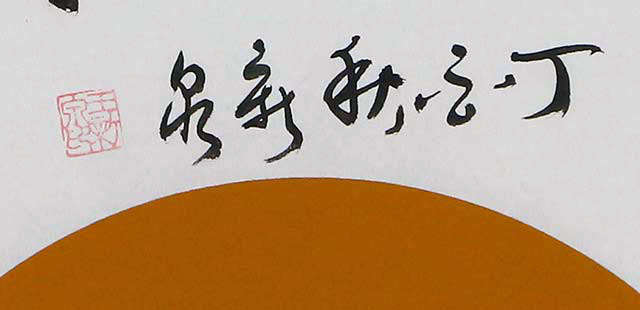 丁酉秋新泉